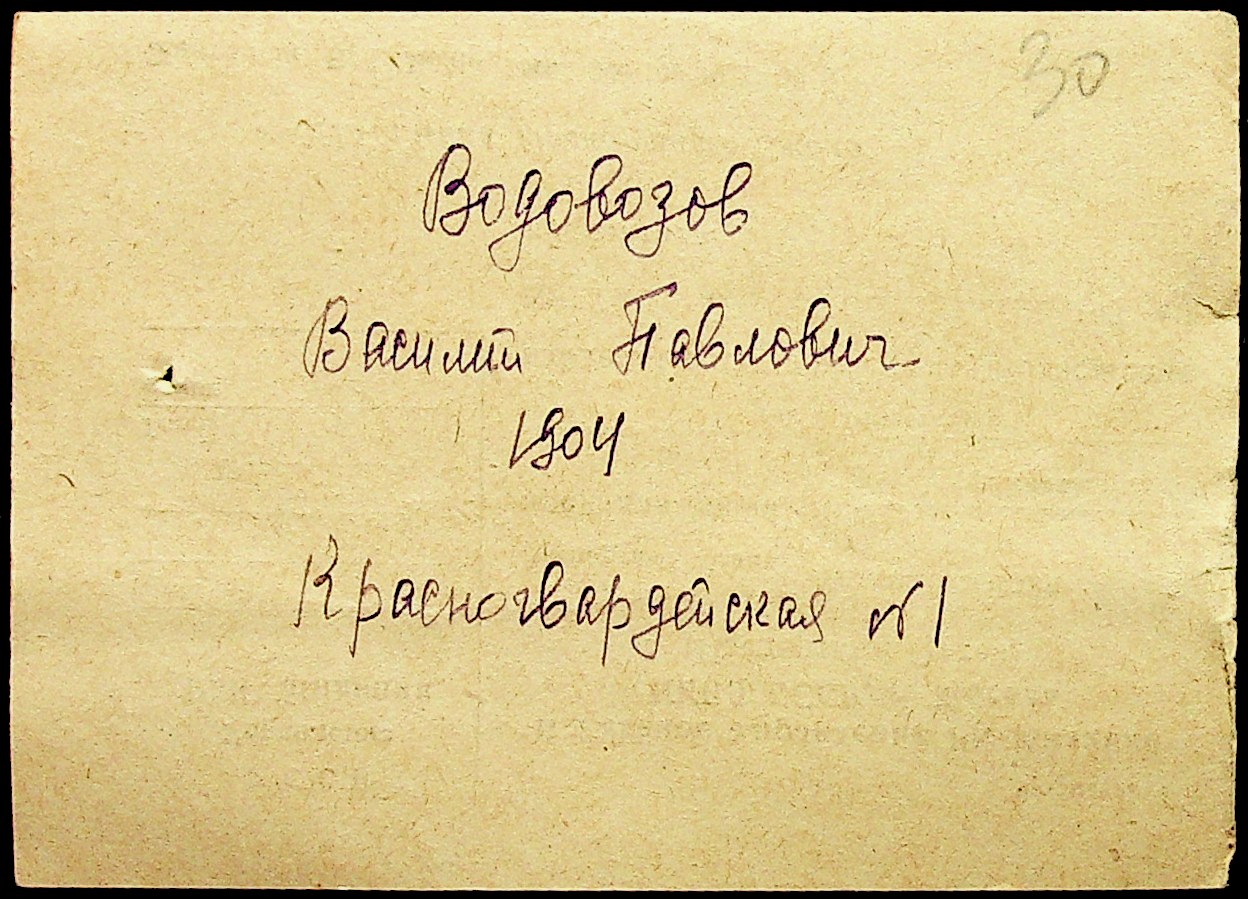 30
Водовозов
Василий Павлович
1904
Красногвардейская № 1